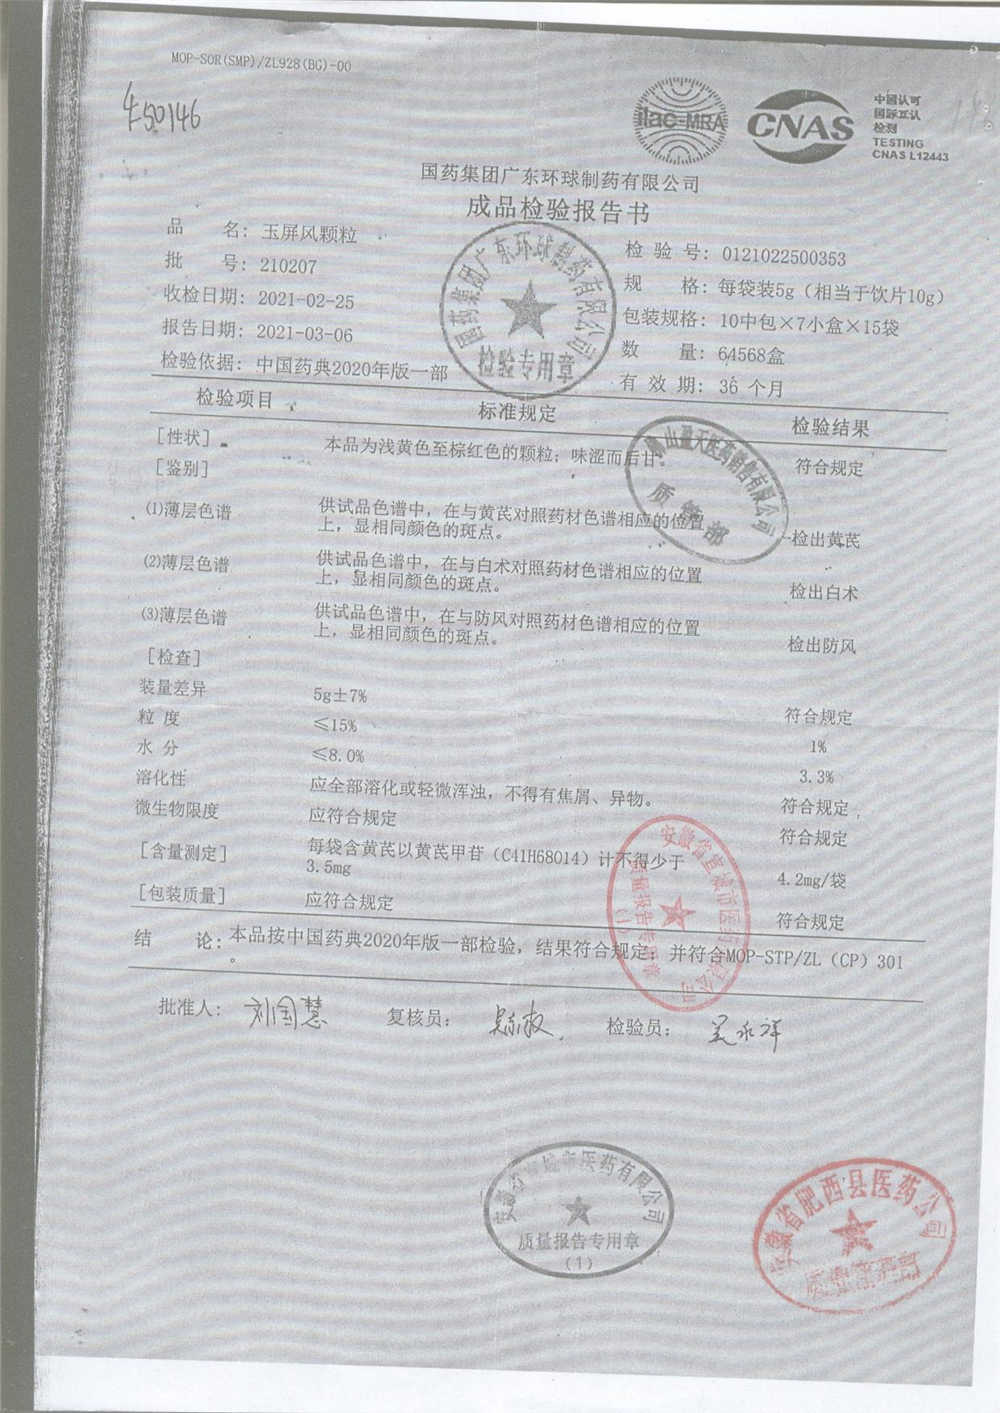 MOP-SOR(SMP)/ZL928(BG)-00
450146
ilac-MRA
CNAS
中国认可
国际互认
检测
TESTING
CNAS L12443
国药集团广东环球制药有限公司
成品检验报告书
品 名: 玉屏风颗粒
检 验 号: 0121022500353
批 号: 210207
规 格: 每袋装5g（相当于饮片10g）
收检日期: 2021-02-25
包装规格: 10中包×7小盒×15袋
报告日期: 2021-03-06
数 量: 64568盒
检验依据: 中国药典2020年版一部
有 效 期: 36 个月
国药集团广东环球制药有限公司
检验专用章
检验项目 标准规定 检验结果
[性状] 本品为浅黄色至棕红色的颗粒; 味涩而后甘。 符合规定
[鉴别]
⑴薄层色谱 供试品色谱中, 在与黄芪对照药材色谱相应的位置
上, 显相同颜色的斑点。 检出黄芪
⑵薄层色谱 供试品色谱中, 在与白术对照药材色谱相应的位置
上, 显相同颜色的斑点。 检出白术
⑶薄层色谱 供试品色谱中, 在与防风对照药材色谱相应的位置
上, 显相同颜色的斑点。 检出防风
[检查]
装量差异 5g±7% 符合规定
粒 度 ≤15% 1%
水 分 ≤8.0% 3.3%
溶化性 应全部溶化或轻微浑浊, 不得有焦屑、异物。 符合规定
微生物限度 应符合规定 符合规定
[含量测定] 每袋含黄芪以黄芪甲苷（C41H68O14）计不得少于
3.5mg 4.2mg/袋
[包装质量] 应符合规定 符合规定
结 论: 本品按中国药典2020年版一部检验, 结果符合规定; 并符合MOP-STP/ZL（CP）301
。
批准人: 刘国慧 复核员: 检验员: 吴永祥
山盈天医药销售有限公司
质管部
安徽省宣城市医药有限公司
质量报告专用章
(1)
安徽省宣城市医药有限公司
质量报告专用章
(1)
安徽省肥西县医药公司